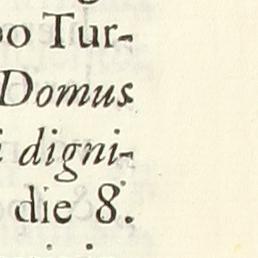 o Tur-
Domus
i digni-
die 8.